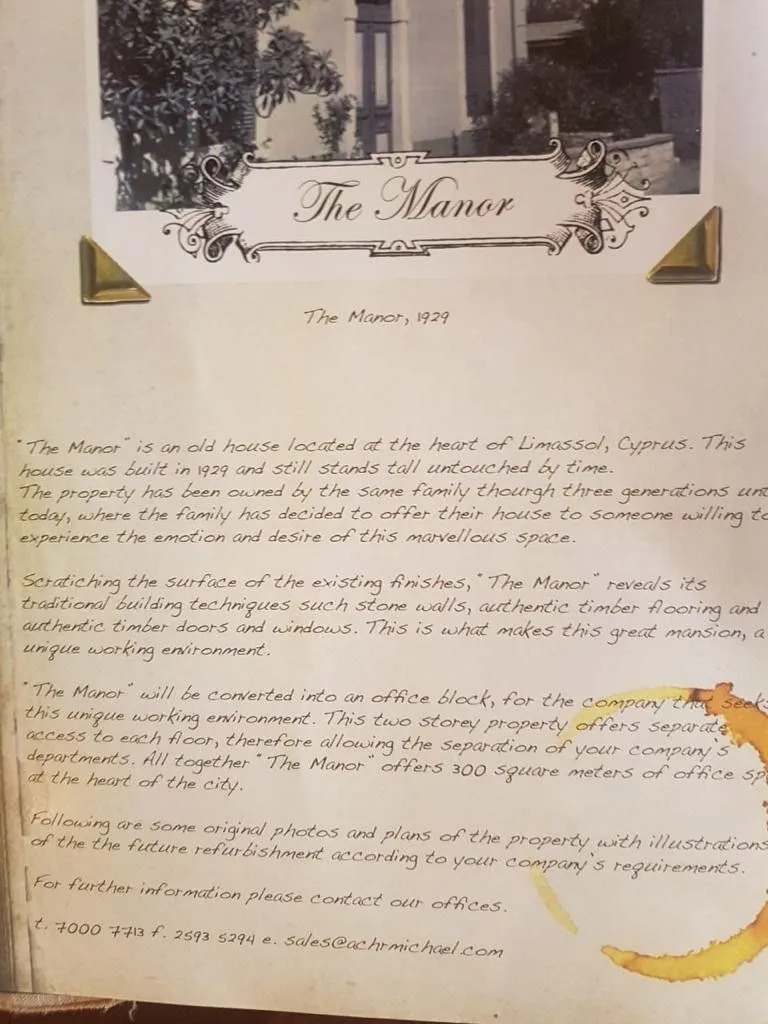 The Manor
The Manor, 1929
"The Manor" is an old house located at the heart of Limassol, Cyprus. This
house was built in 1929 and still stands tall untouched by time.
The property has been owned by the same family thourgh three generations unt
today, where the family has decided to offer their house to someone willing to
experience the emotion and desire of this marvellous space.
Scratiching the surface of the existing finishes, "The Manor" reveals its
traditional building techniques such stone walls, authentic timber flooring and
authentic timber doors and windows. This is what makes this great mansion, a
unique working environment.
"The Manor" will be converted into an office block, for the company that seeks
this unique working environment. This two storey property offers separate
access to each floor, therefore allowing the separation of your company's
departments. All together "The Manor" offers 300 square meters of office sp
at the heart of the city.
Following are some original photos and plans of the property with illustrations
of the the future refurbishment according to your company's requirements.
For further information please contact our offices.
t. 7000 7713 f. 2593 5294 e. sales@achrmichael.com